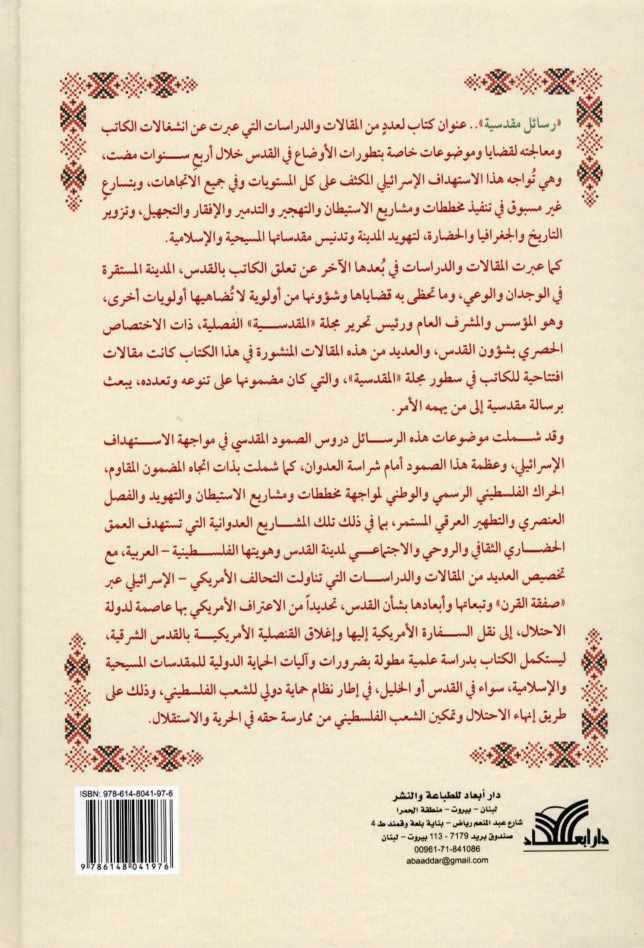 «رسائل مقدسية».. عنوان كتاب لعددٍ من المقالات والدراسات التي عبرت عن انشغالات الكاتب
ومعالجته لقضايا وموضوعات خاصة بتطورات الأوضاع في القدس خلال أربع سنوات مضت،
وهي تُواجه هذا الاستهداف الإسرائيلي المكثف على كل المستويات وفي جميع الاتجاهات، وبتسارعٍ
غير مسبوق في تنفيذ مخططات ومشاريع الاستيطان والتهجير والتدمير والإفقار والتجهيل، وتزوير
التاريخ والجغرافيا والحضارة، لتهويد المدينة وتدنيس مقدساتها المسيحية والإسلامية.
كما عبرت المقالات والدراسات في بُعدها الآخر عن تعلق الكاتب بالقدس، المدينة المستقرة
في الوجدان والوعي، وما تحظى به قضاياها وشؤونها من أولوية لا تُضاهيها أولويات أخرى،
وهو المؤسس والمشرف العام ورئيس تحرير مجلة «المقدسية» الفصلية، ذات الاختصاص
الحصري بشؤون القدس، والعديد من هذه المقالات المنشورة في هذا الكتاب كانت مقالات
افتتاحية للكاتب في سطور مجلة «المقدسية»، والتي كان مضمونها على تنوعه وتعدده، يبعث
برسالة مقدسية إلى من يهمه الأمر.
وقد شملت موضوعات هذه الرسائل دروس الصمود المقدسي في مواجهة الاستهداف
الإسرائيلي، وعظمة هذا الصمود أمام شراسة العدوان، كما شملت بذات اتجاه المضمون المقاوم،
الحراك الفلسطيني الرسمي والوطني لمواجهة مخططات ومشاريع الاستيطان والتهويد والفصل
العنصري والتطهير العرقي المستمر، بما في ذلك تلك المشاريع العدوانية التي تستهدف العمق
الحضاري الثقافي والروحي والاجتماعي لمدينة القدس وهويتها الفلسطينية – العربية، مع
تخصيص العديد من المقالات والدراسات التي تناولت التحالف الأمريكي – الإسرائيلي عبر
«صفقة القرن» وتبعاتها وأبعادها بشأن القدس، تحديداً من الاعتراف الأمريكي بها عاصمة لدولة
الاحتلال، إلى نقل السفارة الأمريكية إليها وإغلاق القنصلية الأمريكية بالقدس الشرقية،
ليستكمل الكتاب بدراسة علمية مطولة بضرورات وآليات الحماية الدولية للمقدسات المسيحية
والإسلامية، سواء في القدس أو الخليل، في إطار نظام حماية دولي للشعب الفلسطيني، وذلك على
طريق إنهاء الاحتلال وتمكين الشعب الفلسطيني من ممارسة حقه في الحرية والاستقلال.
دار أبعاد للطباعة والنشر
لبنان – بيروت – منطقة الحمرا
شارع عبد المنعم رياض – بناية بلعة وقمند ط 4
صندوق بريد 7179 - 113 بيروت – لبنان
00961-71-841086
abaaddar@gmail.com
دار ابعاد
ISBN: 978-614-8041-97-6
9 786148 041976